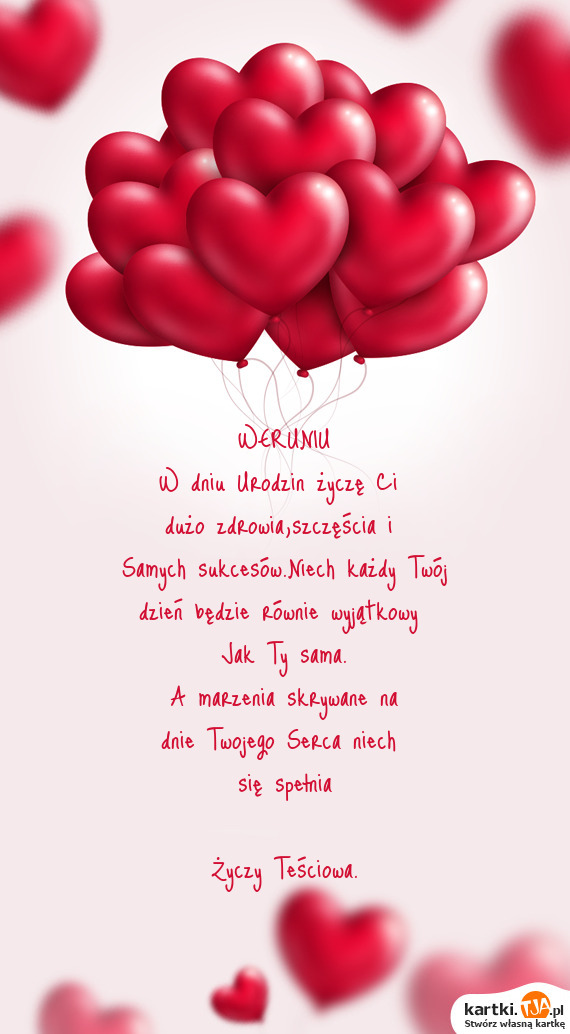 WERUNIU
W dniu Urodzin życzę Ci
dużo zdrowia,szczęścia i
Samych sukcesów.Niech każdy Twój
dzień będzie równie wyjątkowy
Jak Ty sama.
A marzenia skrywane na
dnie Twojego Serca niech
się spełnia
Życzy Teściowa.
kartki.TJA.pl
Stwórz własną kartkę